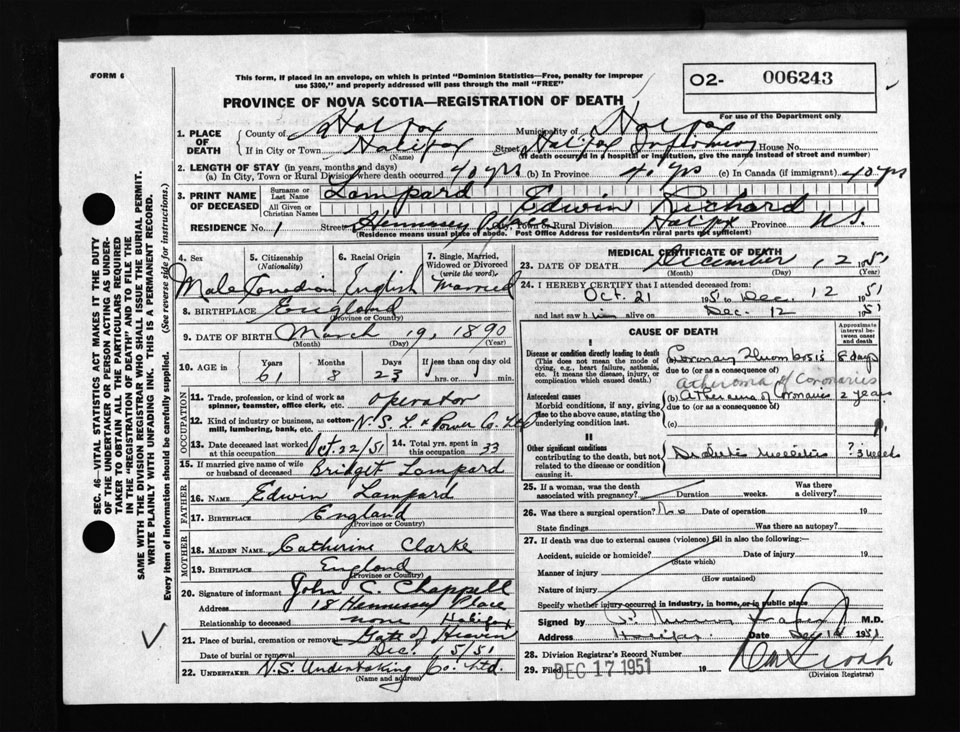 FORM 6
This form, if placed in an envelope, on which is printed "Dominion Statistics—Free, penalty for improper
use $300," and properly addressed will pass through the mail "FREE"
02- 006243
For use of the Department only
PROVINCE OF NOVA SCOTIA—REGISTRATION OF DEATH
1. PLACE OF DEATH County of Halifax Municipality of Halifax
If in City or Town Halifax Street Halifax Infirmary House No.
(Name) (If death occurred in a hospital or institution, give the name instead of street and number)
2. LENGTH OF STAY (in years, months and days)
(a) In City, Town or Rural Division where death occurred 40 yrs (b) In Province 40 yrs (c) In Canada (if immigrant) 40 yrs
3. PRINT NAME OF DECEASED Surname or Last Name Lampard
All Given or Christian Names Edwin Richard
RESIDENCE No. 1 Street Hennessey Place Town or Rural Division Halifax Province N.S.
(Residence means usual place of abode. Post Office Address for residents in rural parts not sufficient)
SEC. 46—VITAL STATISTICS ACT MAKES IT THE DUTY
OF THE UNDERTAKER OR PERSON ACTING AS UNDER-
TAKER TO OBTAIN ALL THE PARTICULARS REQUIRED
IN THE "REGISTRATION OF DEATH" AND TO FILE THE
SAME WITH THE DIVISION REGISTRAR WHO SHALL ISSUE THE BURIAL PERMIT.
WRITE PLAINLY WITH UNFADING INK. THIS IS A PERMANENT RECORD.
Every item of information should be carefully supplied. (See reverse side for instructions.)
4. Sex 5. Citizenship (Nationality) 6. Racial Origin 7. Single, Married, Widowed or Divorced (write the word)
Male Canadian English Married
8. BIRTHPLACE England
(Province or Country)
9. DATE OF BIRTH March 19, 1890
(Month) (Day) (Year)
10. AGE in Years Months Days If less than one day old
61 8 23 hrs. or min.
OCCUPATION
11. Trade, profession, or kind of work as spinner, teamster, office clerk, etc. operator
12. Kind of industry or business, as cotton-mill, lumbering, bank, etc. N.S. L. & Power Co. Ltd
13. Date deceased last worked at this occupation Oct. 22/51 14. Total yrs. spent in this occupation 33
15. If married give name of wife or husband of deceased Bridget Lampard
FATHER
16. NAME Edwin Lampard
17. BIRTHPLACE England
(Province or Country)
MOTHER
18. MAIDEN NAME Catherine Clarke
19. BIRTHPLACE England
(Province or Country)
20. Signature of informant John C. Chappell
Address 18 Hennessey Place
Relationship to deceased none Halifax
21. Place of burial, cremation or removal Gate of Heaven
Date of burial or removal Dec. 15/51
22. UNDERTAKER N.S. Undertaking Co. Ltd.
(Name and address)
MEDICAL CERTIFICATE OF DEATH
23. DATE OF DEATH December 12 1951
(Month) (Day) (Year)
24. I HEREBY CERTIFY that I attended deceased from:
Oct. 21 1951 to Dec. 12 1951
and last saw him alive on Dec. 12 1951
CAUSE OF DEATH
Approximate interval between onset and death
I
Disease or condition directly leading to death
(This does not mean the mode of dying, e.g., heart failure, asthenia, etc. It means the disease, injury, or complication which caused death.)
Coronary Thrombosis 8 days
due to (or as a consequence of)
Atheroma of Coronaries
Antecedent causes
Morbid conditions, if any, giving rise to the above cause, stating the underlying condition last.
(b) Atheroma of Coronaries 2 years
due to (or as a consequence of)
(c)
II
Other significant conditions
contributing to the death, but not related to the disease or condition causing it.
Diabetes Mellitus ? 3 weeks
25. If a woman, was the death associated with pregnancy? Duration weeks. Was there a delivery?
26. Was there surgical operation? No Date of operation 19
State findings Was there an autopsy?
27. If death was due to external causes (violence) fill in also the following:—
Accident, suicide or homicide? Date of injury 19
(State which)
Manner of injury
(How sustained)
Nature of injury
Specify whether injury occurred in industry, in home, or in public place
Signed by M.D.
Address Halifax. Date Dec 1951
28. Division Registrar's Record Number
29. Filed DEC 17 1951 19
(Division Registrar)